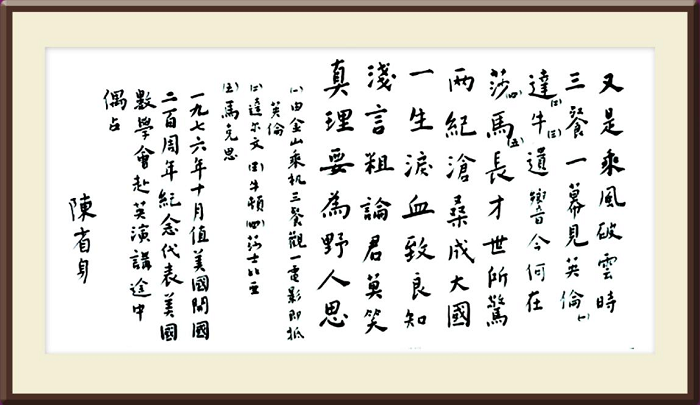 又是乘風破雲時
三餐一幕見英倫㈠
達㈡牛㈢遺響今何在
莎㈣馬㈤長才世所驚
兩紀滄桑成大國
一生淚血致良知
淺言粗論君莫笑
真理要為野人思
㈠由金山乘机三餐觀一電影即抵
英倫
㈡達尔文 ㈢牛頓 ㈣莎士比亚
㈤馬克思
一九七六年十月值美國開國
二百周年紀念代表美國
數學會赴英演講途中
偶占
陳省身